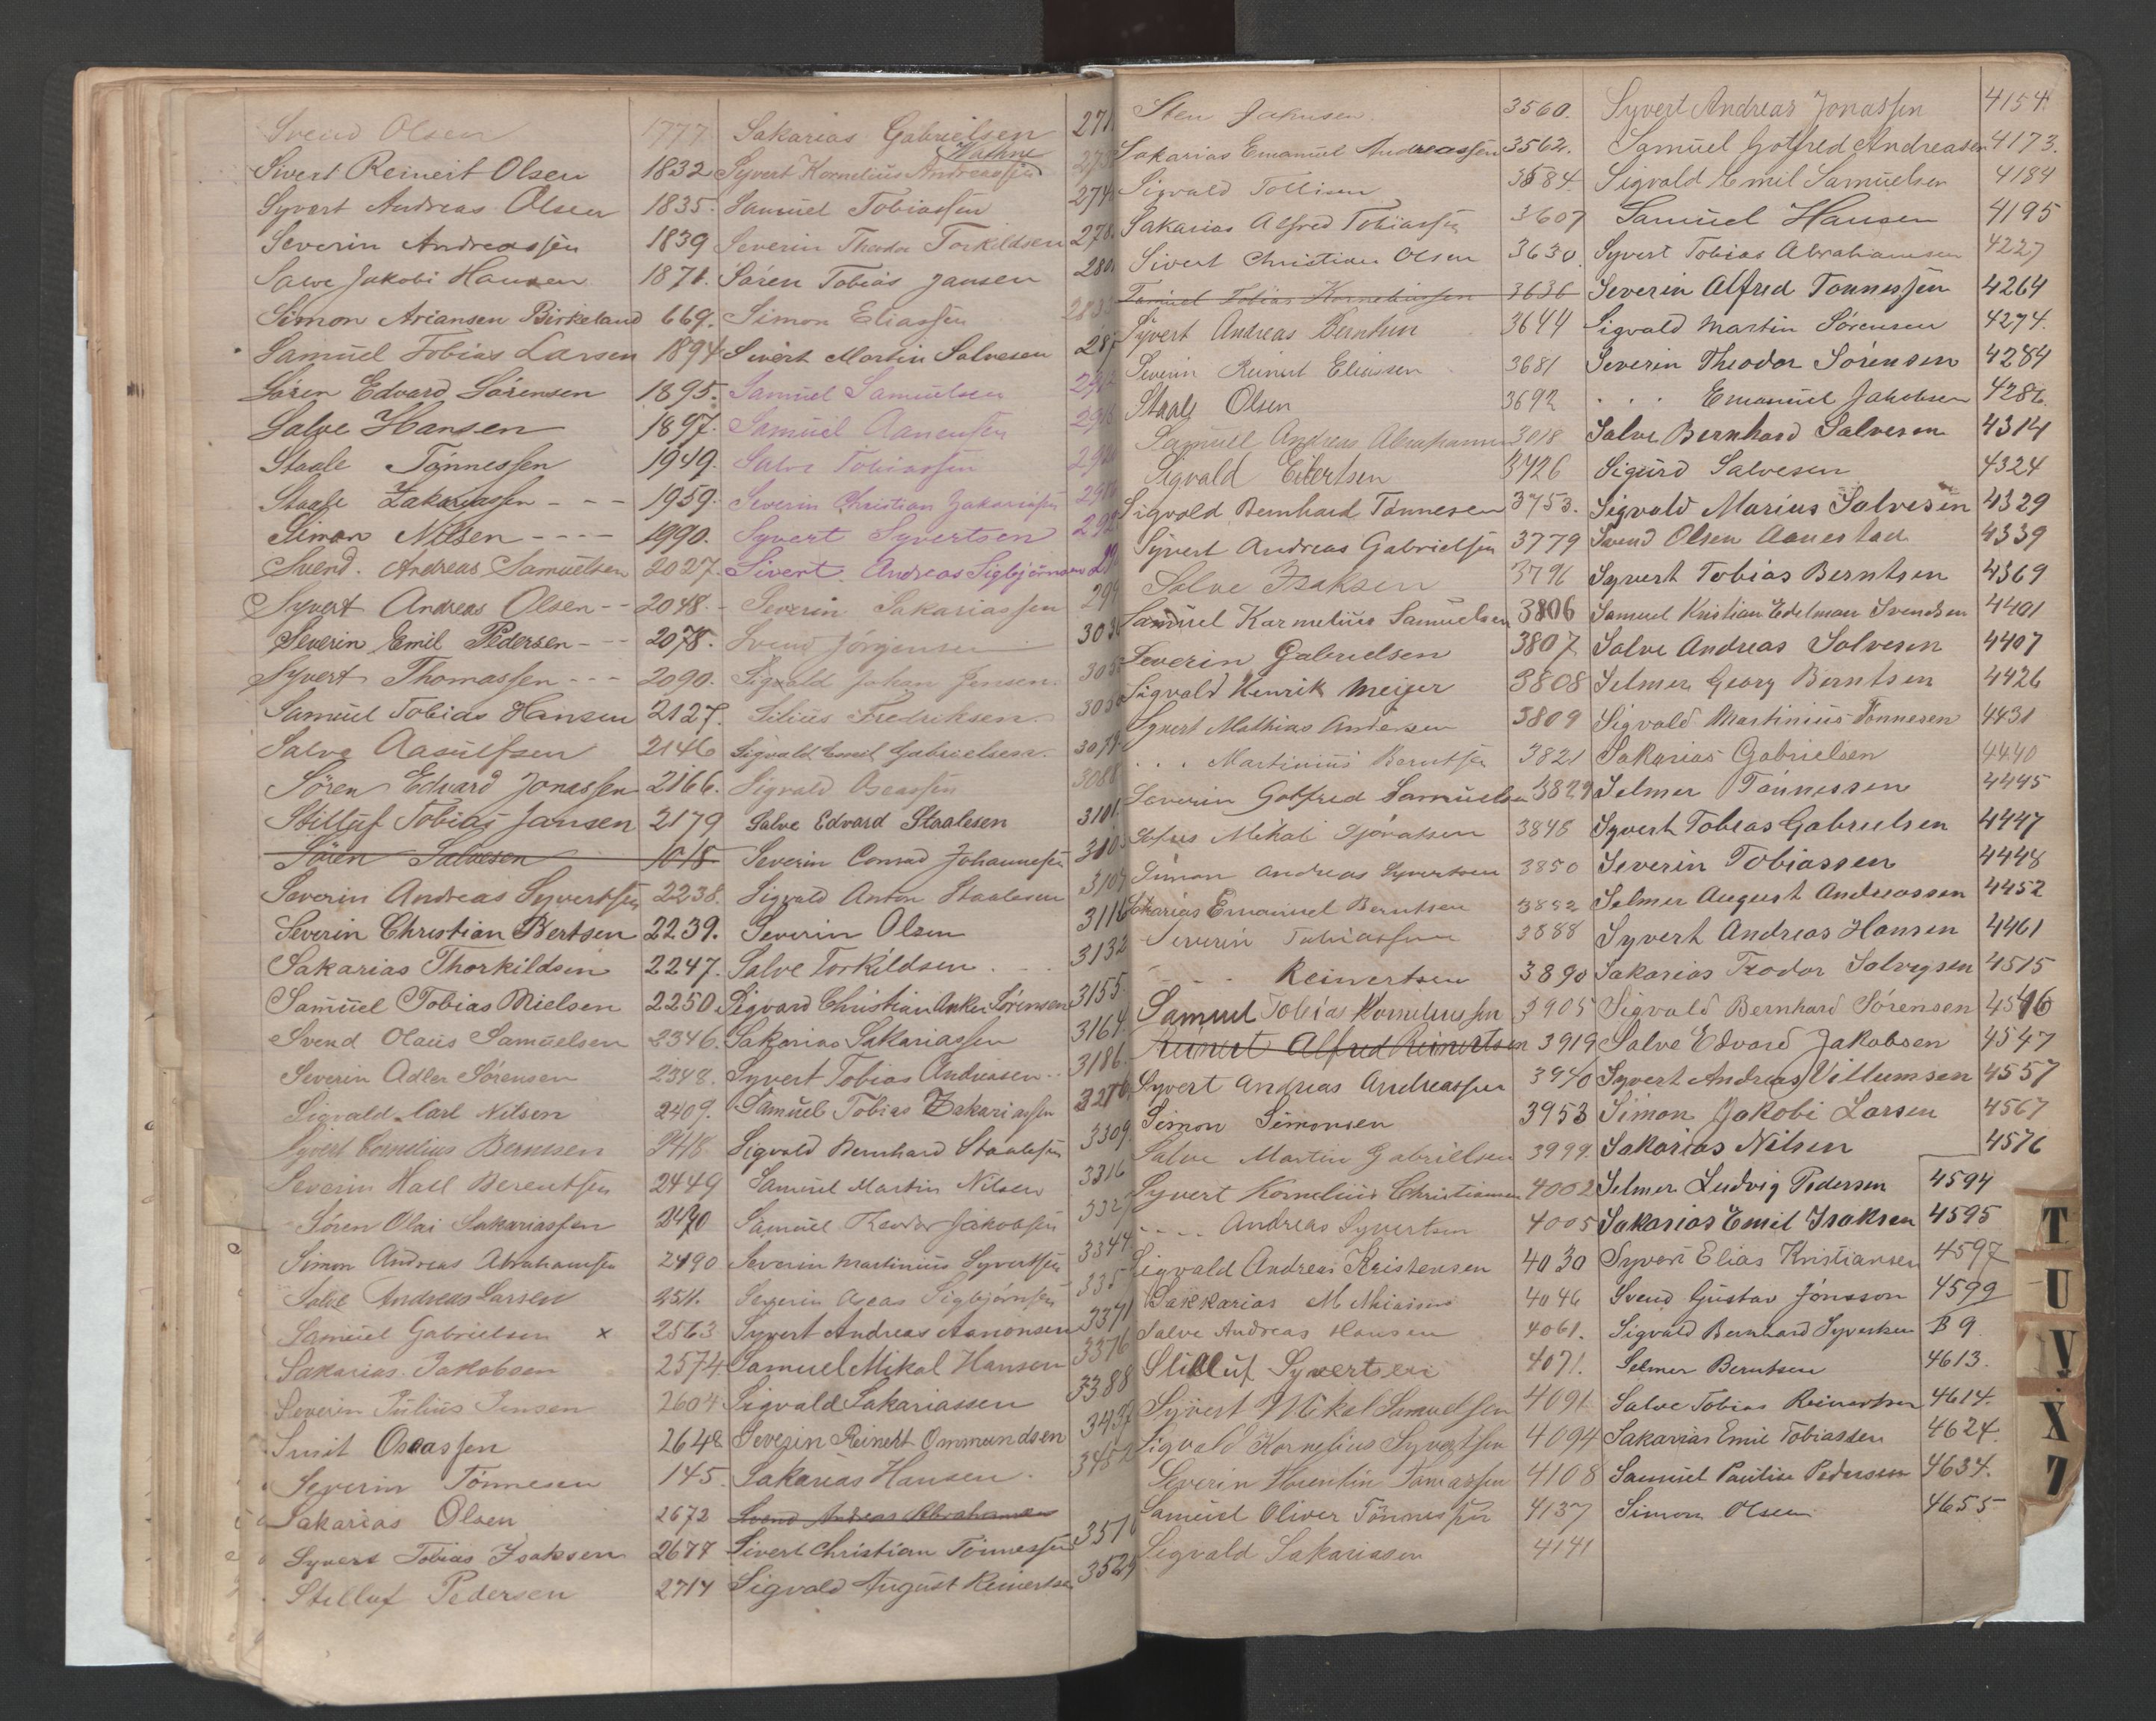 Svend Olsen 1777
Sivert Reinert Olsen 1832
Syvert Andreas Olsen 1835.
Severin Andreassen 1839
Salve Jakobi Hansen 1871.
Simon Ariansen Birkeland 669.
Samuel Tobias Larsen 1894
Sören Edvard Sörensen 1895.
Salve Hansen 1897.
Staale Tönnessen 1949.
Staale Zakariassen - - - 1959.
Simon Nilsen - - - - 1990.
Svend. Andreas Samuelsen 2027.
Syvert Andreas Olsen - - 2048.
Severin Emil Pedersen - - 2078.
Syvert Thomassen - - - 2090.
Samuel Tobias Hansen 2127.
Salve Aasulfsen 2146
Sören Edvard Jonassen 2166.
Stilluf Tobias Jansen 2179
Sören Salvesen 1018
Severin Andreas Syvertsen 2238.
Severin Christian Bertsen 2239.
Sakarias Thorkildsen 2247.
Samuel Tobias Nielsen 2250
Svend Olaus Samuelsen 2346.
Severin Adler Sörensen 2348.
Sigvald Carl Nilsen 2409.
Syvert Cornelius Berntsen 2418.
Severin Hall Berentsen 2449
Sören Olai Sakariassen 2470
Simon Andreas Abrahamsen 2490
Salve Andreas Larsen 2511.
Samuel Gabrielsen x 2563
Sakarias Jakobsen 2574.
Severin Julius Jensen 2604
Smit Oseassen 2648
Severin Tönnesen 145
Sakarias Olsen 2672
Syvert Tobias Isaksen 2677
Stilluf Pedersen 2714
Sakarias Gabrielsen 271
Syvert Kornelius Andreassen 273
Samuel Tobiassen 274
Severin Theodor Torkildsen 278.
Sören Tobias Jansen 280
Simon Eliassen 283
Sivert Martin Salvesen 287
Samuel Samuelsen
Samuel Aanensen
Salve Tobiassen
Severin Christian Zakariassen
Syvert Syvertsen
Sivert. Andreas Sigbjörnsen
Severin Sakariassen 299
Svend Jörgensen 303
Sigvald Johan Jensen. 305
Silius Fredriksen
Sigvald Emil Gabrielsen. 3079
Sigvald Oseassen 3088
Salve Edvard Staalesen 3101
Severin Conrad Johannesen 3103
Sigvald Anton Staalesen 3107
Severin Olsen 3116
Salve Torkildsen 3132
Sigvard Christian Anker Sörensen 3155.
Sakarias Sakariassen 3164.
Syvert Tobias Andreasen 3186
Samuel Tobias Zakariassen 3276
Sigvald Bernhard Staalesen 3309
Samuel Martin Nilsen 3316
Samuel Theodor Jakobsen 332
Severin Martinius Syvertsen 3344
Severin Oseas Sigbjörnsen 335
Syvert Andreas Aanonsen 3371
Samuel Mikal Hansen 3376
Sigvald Sakariassen 3388
Severin Reinert Ommundsen 3437
Sakarias Hansen. 345
Svend Andreas Abrahamsen
Sivert Christian Tönnessen 351
Sigvald August Reinertsen 3529
Sten Jaknsen 3560.
Sakarias Emanuel Andreassen 3562.
Sigvald Tollisen 3584.
Sakarias Alfred Tobiassen 3607
Sivert Christian Olsen 3630
Samuel Tobias Korneliussen 3636
Syvert Andreas Berntsen 3644
Severin Reinert Eliassen 3681
Staale Olsen 3692
Samuel Andreas Abrahamsen 3018
Sigvald Eilertsen 3726
Sigvald Bernhard Tönnesen 3753.
Syvert Andreas Gabrielsen 3779
Salve Isaksen 3796
Samuel Karnelius Samuelsen 3806
Severin Gabrielsen 3807
Sigvald Henrik Meijer 3808
Syvert Mathias Andersen 3809
. . . Martinius Berntsen 3821
Severin Gotfred Samuelsen 3829
Mikal 3848
Simon Andreas Syvertsen 3850
Sakarias Emanuel Berntsen 3882
Severin Tobiassen 3888
- - - Reinertsen 3890
Samuel Tobias Korneliussen 3905
Reinert Alfred Reinertsen 3919
Syvert Andreas Andreassen 3940
Simon Simonsen 3953
Salve Martin Gabrielsen 3999.
Syvert Kornelius Christiansen 4002
- - - Andreas Syvertsen 4005
Sigvald Andreas Kristensen 4030
Sakkarias M. 4046
Salve Andreas Hansen 4061.
Stilluf Syvertsen 4071.
Syvert Mikal Samuelsen 4091
Sigvald Kornelius Syvertsen 4094
Severin 4108
Samuel Oliver Tönnessen 4137
Sigvald Sakariassen 4141
Syvert Andreas Jonassen 4154
Samuel Gotfred Andreasen 4173.
Sigvald Emil Samuelsen 4184
Samuel Hansen 4195
Syvert Tobias Abrahamsen 4227
Severin Alfred Tonnessen 4264
Sigvald Martin Sörensen 4274.
Severin Theodor Sörensen 4284
. . . Emanuel Jakobsen 4286.
Salve Bernhard Salvesen 4314
Sigurd Salvesen 4324
Sigvald Marius Salvesen 4329
Svend Olsen Aanestad 4339
Syvert Tobias Berntsen 4369
Samuel Kristian Edelman Svendsen 4401
Salve Andreas Salvesen 4407
Selmer Georg Berntsen 4426
Sigvald Martinius Tonnesen 4431
Sakarias Gabrielsen 4440
Selmer Tönnessen 4445
Syvert Tobias Gabrielsen 4447
Severin Tobiassen 4448
Selmer August Andreassen 4452
Syvert Andreas Hansen 4461
Sakarias Teodor Salvesen 4515
Sigvald Bernhard Sörensen 4516
Salve Edvard Jakobsen 4547
Syvert Andreas Villumsen 4557
Simon Jakobi Larsen 4567
Sakarias Nilsen 4576
Selmer Ludvig Pedersen 4594
Sakarias Emil Isaksen 4595
Syvert Elias Kristiansen 4597
Svend Gustav Jönsson 4599
Sigvald Bernhard Syvertsen B 9
Selmer Berntsen 4613.
Salve Tobias Reinertsen 4614.
Sakarias Emil Tobiassen 4624.
Samuel Paulin Pedersen 4634.
Simon Olsen 4655
T
U
V
X
Z